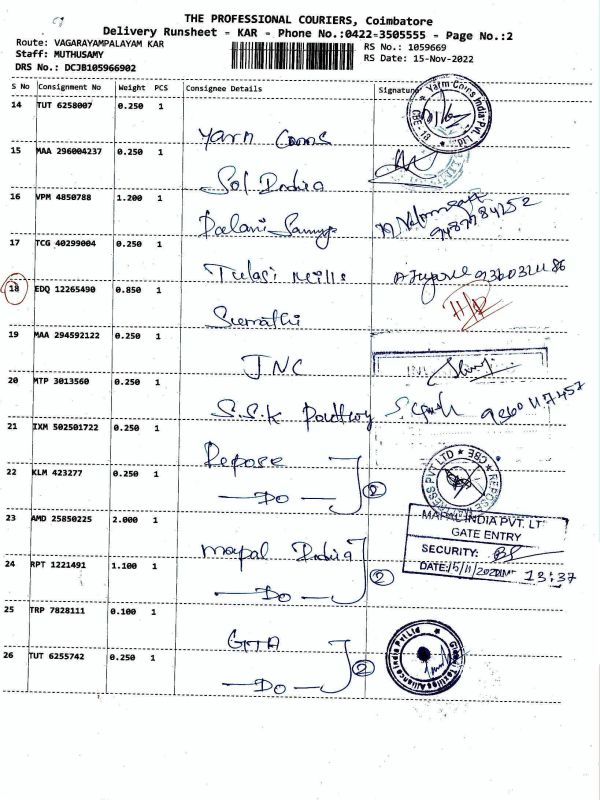 THE PROFESSIONAL COURIERS, Coimbatore
Delivery Runsheet - KAR - Phone No.:0422-3505555 - Page No.:2
Route: VAGARAYAMPALAYAM KAR
RS No.: 1059669
Staff: MUTHUSAMY
RS Date: 15-Nov-2022
DRS No.: DCJB105966902
S No Consignment No Weight PCS Consignee Details Signature
14 TUT 6258007 0.250 1
Yarn Cones
Yarn Cones India Pvt. Ltd
CBE-18
15 MAA 296004237 0.250 1
Sol India
16 VPM 4850788 1.200 1
Palani Samy
17 TCG 40299004 0.250 1
Tulasi mills
18 EDQ 12265490 0.850 1
Sumathi
H/D
19 MAA 294592122 0.250 1
JNC
20 MTP 3013560 0.250 1
S.S.K
21 IXM 502501722 0.250 1
Repose
22 KLM 423277 0.250 1
Do 2
REPOSE
PVT LTD
CBE
23 AMD 25850225 2.000 1
mapal India
MAPAL INDIA PVT. LT
GATE ENTRY
SECURITY:
DATE: 15/11/2022
13:37
24 RPT 1221491 1.100 1
Do 2
25 TRP 7828111 0.100 1
GTA
26 TUT 6255742 0.250 1
Do 2
Global Textiles Alliance India Pvt Ltd